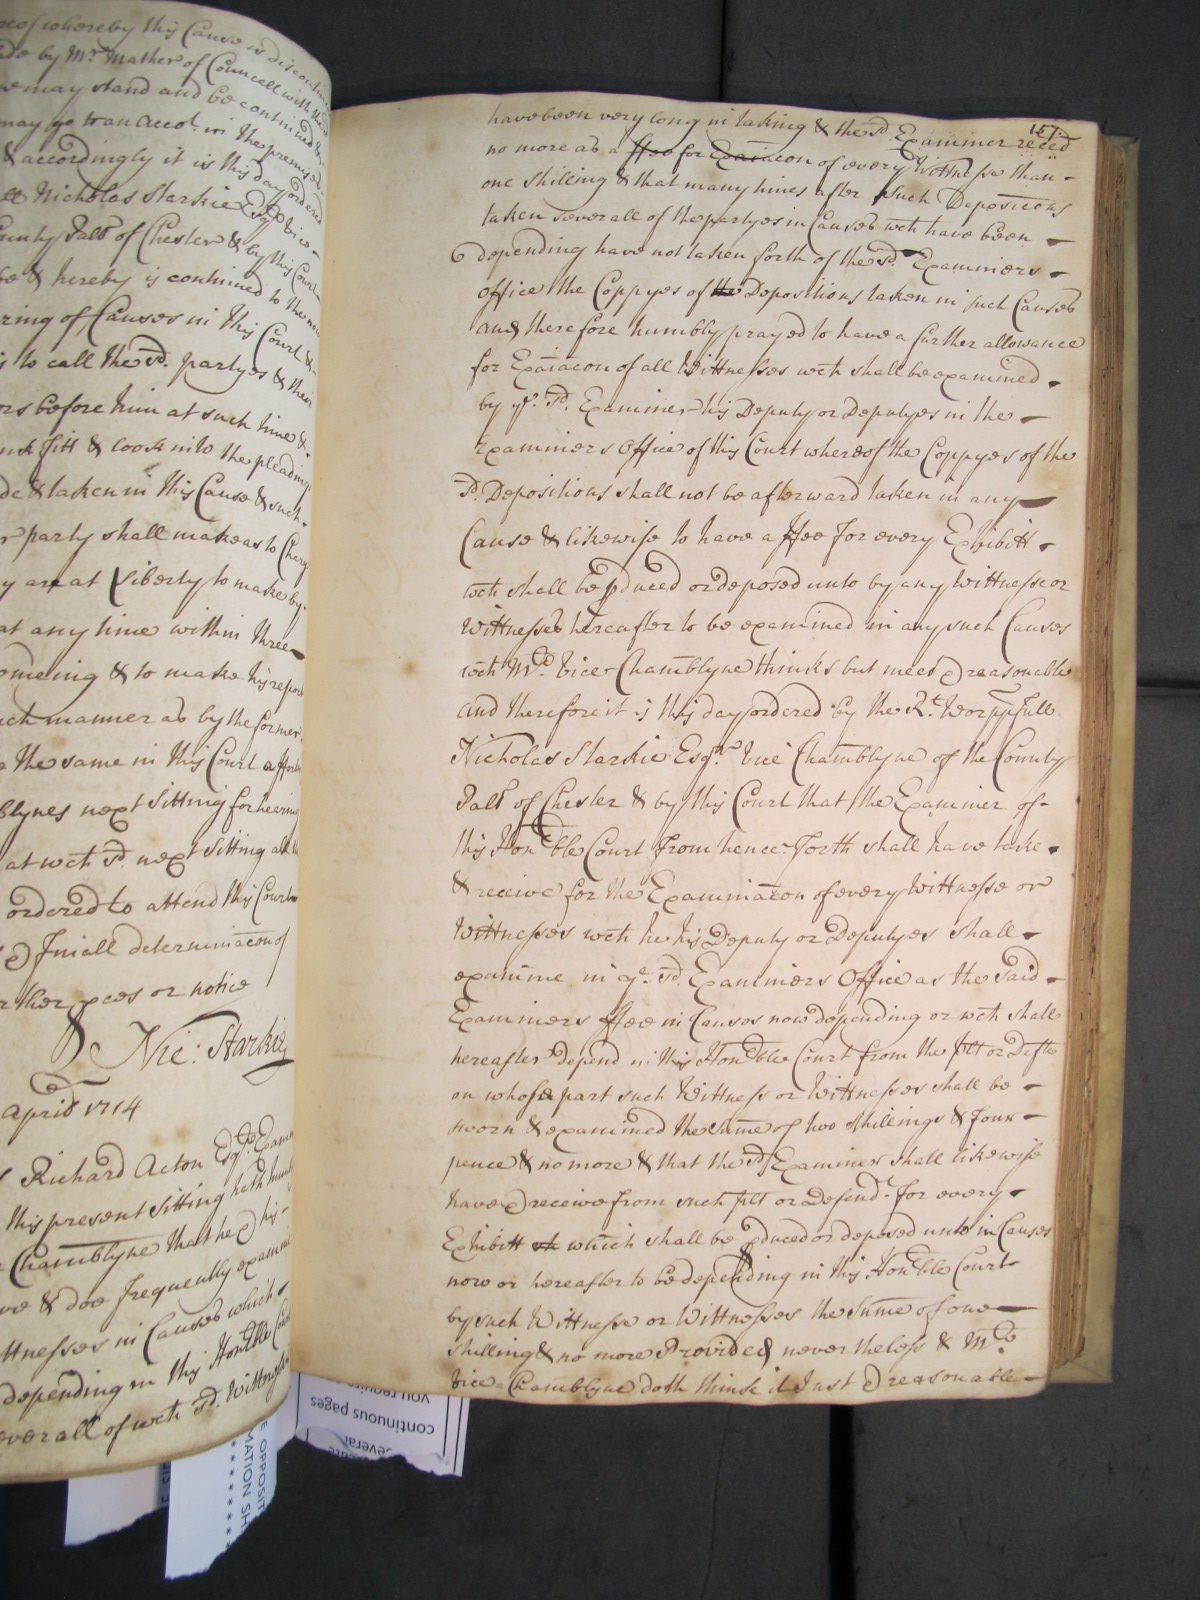 whereby this Cause is
by Mr. Mather of Councell with
may stand and be continued
may go to an Accot. in the premises
& accordingly it is this day ordered
Nicholas Starkie Esqr. Vice
County Palt of Chester & by this Court
be & hereby is continued to the
of Causes in this Court &
to call the sd. partyes & their
before him at such time &
fitt & look into the pleadings
& taken in this Cause & such
party shall make as to
are at Liberty to make by
at any time within three
& to make his report
manner as by the former
the same in this Court
next sitting for hearing
at wch sd. next sitting
ordered to attend this Court
& finall determinacon of
pces or notice
Nic: Starkie
April 1714
Richard Acton Esqr.
this present Sitting hath
Chamblyne that he & his
& doe frequently
in Causes which
depending in this Honoble
of wch sd. Wittnesses
157.
have been very long in taking & the sd. Examiner reced
no more as a ffee for Exaiacon of every Wittnesse than
one shilling & that many times after such Deposicons
taken severall of the partyes in Causes wch have been
depending have not taken forth of the sd. Examiners
office the Coppyes of the Depositions taken in such Causes
and therefore humbly prayed to have a further allowance
for Exaiacon of all Wittnesses wch shall be examined
by ye. sd. Examiner his Deputy or Deputyes in the
Examiners Office of this Court whereof the Coppyes of the
sd. Depositions shall not be afterward taken in any
Cause & likewise to have a ffee for every Exhibitt
wch shall be pduced or deposed unto by any Wittnesse or
Wittnesses hereafter to be examined in any such Causes
wch Mr. Vice Chamblyne thinks but meet & reasonable
and therefore it is this day ordered by the Rt. Worppfull
Nicholas Starkie Esqr. Vice Chamblyne of the County
Palt of Chester & by this Court that the Examiner of
this Honoble Court from hence forth shall have take
& receive for the Examinacon of every Wittnesse or
Wittnesses wch he his Deputy or Deputyes shall
examine in ye. sd. Examiners Office as the said
Examiners ffee in Causes now depending or wch shall
hereafter Depend in this Honoble Court from the plt or Deft
on whose part such Wittness or Wittnesses shall be
sworn & examined the sume of two shillings & four
pence & no more & that the sd. Examiner shall likewise
have & receive from such plt or Defendt. for every
Exhibitt which shall be pduced or deposed unto in Causes
now or hereafter to be depending in this Honoble Court
by such Wittnesse or Wittnesses the Sume of one
shilling & no more Provided neverthelesse & Mr.
Vice=Chamblyne doth think it Just & reasonable
continuous pages